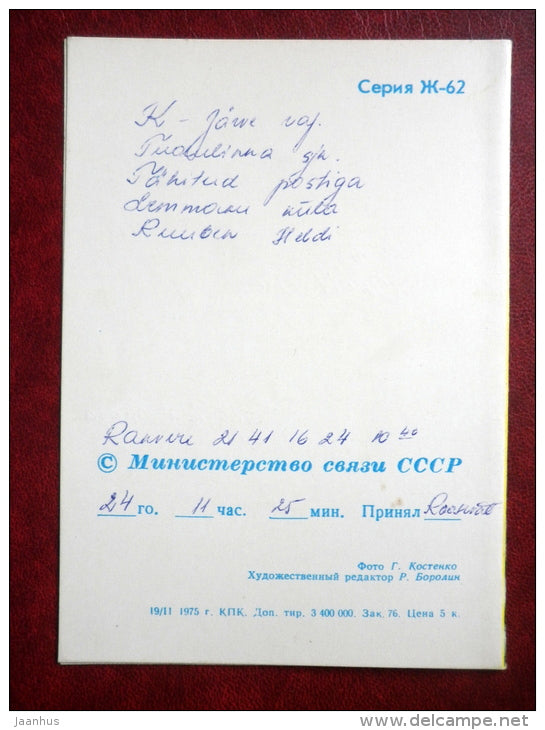 Серия Ж-62
K - Järve raj.
Tudulinna s/n.
Tähitud postiga
Lemmaku küla
Ruuben Heldi
Rakvere 21 41 16 24 10 40
© Министерство связи СССР
24 го. 11 час. 25 мин. Принял
Фото Г. Костенко
Художественный редактор Р. Боролин
19/11 1975 г. КПК. Доп. тир. 3 400 000. Зак. 76. Цена 5 к.
jaanhus
www.delcampe.net